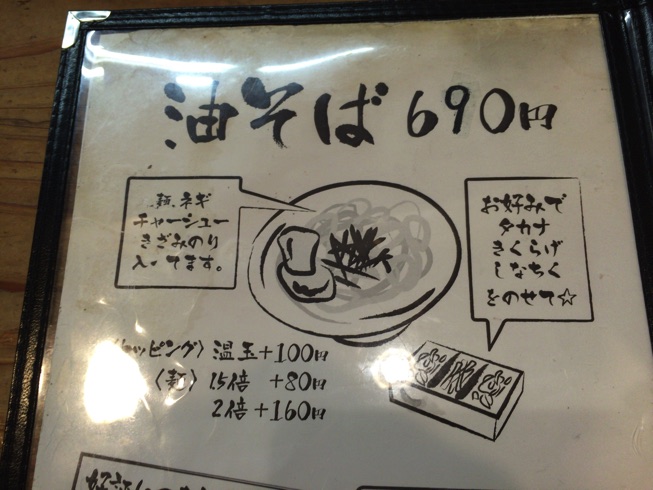 油そば 690円
麺、ネギ
チャーシュー
きざみのり
入ってます。
お好みで
タカナ
きくらげ
しなちく
をのせて☆
〈トッピング〉 温玉+100円
〈麺〉 1.5倍 +80円
2倍 +160円